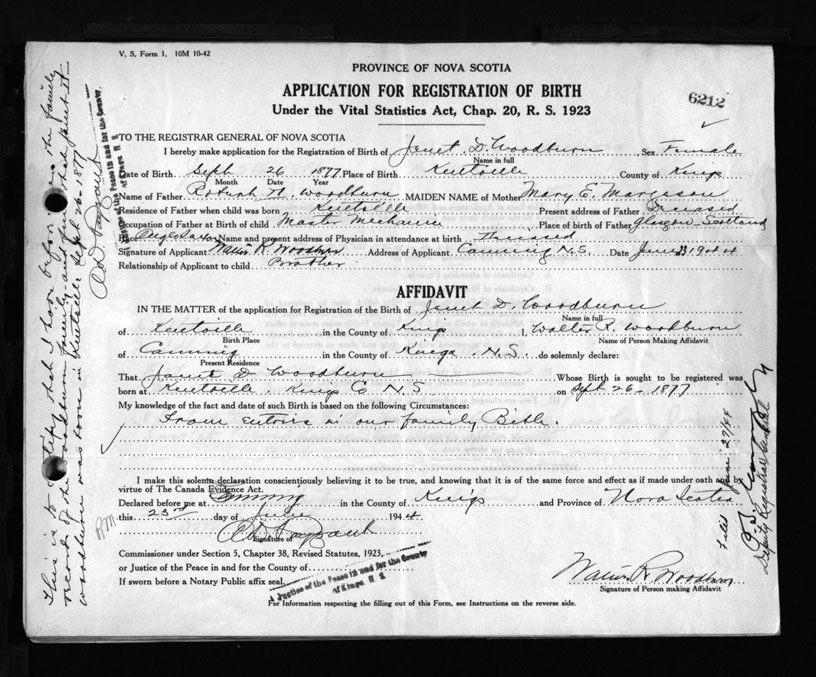 V. S. Form 1. 10M 10-42
PROVINCE OF NOVA SCOTIA
APPLICATION FOR REGISTRATION OF BIRTH
Under the Vital Statistics Act, Chap. 20, R. S. 1923
6212
TO THE REGISTRAR GENERAL OF NOVA SCOTIA
I hereby make application for the Registration of Birth of Janet D. Woodburn Sex Female
Name in full
Date of Birth Sept 26 1877 Place of Birth Kentville County of Kings
Month Date Year
Name of Father H. Woodburn MAIDEN NAME of Mother Mary E. Margeson
Residence of Father when child was born Kentville Present address of Father Deceased
Occupation of Father at Birth of child Master Mechanic Place of birth of Father Glasgow Scotland
Anglo Saxon Name and present address of Physician in attendance at birth Deceased
Signature of Applicant Walter R Woodburn Address of Applicant Canning N.S. Date June 23 1944
Relationship of Applicant to child Brother
AFFIDAVIT
IN THE MATTER of the application for Registration of the Birth of Janet D. Woodburn
Name in full
of Kentville in the County of Kings I, Walter R. Woodburn
Birth Place Name of Person Making Affidavit
of Canning in the County of Kings N.S. do solemnly declare:
Present Residence
That Janet D Woodburn Whose Birth is sought to be registered was
born at Kentville, Kings Co N.S on Sept 26 - 1877
My knowledge of the fact and date of such Birth is based on the following Circumstances:
From entries in our family Bible.
I make this solemn declaration conscientiously believing it to be true, and knowing that it is of the same force and effect as if made under oath and by
virtue of The Canada Evidence Act.
Declared before me at Canning in the County of Kings and Province of Nova Scotia
this 23rd day of June 1944
Signature of
Commissioner under Section 5, Chapter 38, Revised Statutes, 1923,
or Justice of the Peace in and for the County of
If sworn before a Notary Public affix seal.
A Justice of the Peace in and for the County
of Kings N. S.
Walter R Woodburn
Signature of Person making Affidavit
For Information respecting the filling out of this Form, see Instructions on the reverse side.
This is to certify that I have before me the family
record of the Woodburn family, and find that Janet D
Woodburn was born in Kentville, Sept 26 - 1877
Justice of the Peace in and for the County
of Kings N. S.
R.M.
Filed June 27/44
Deputy Registrar General